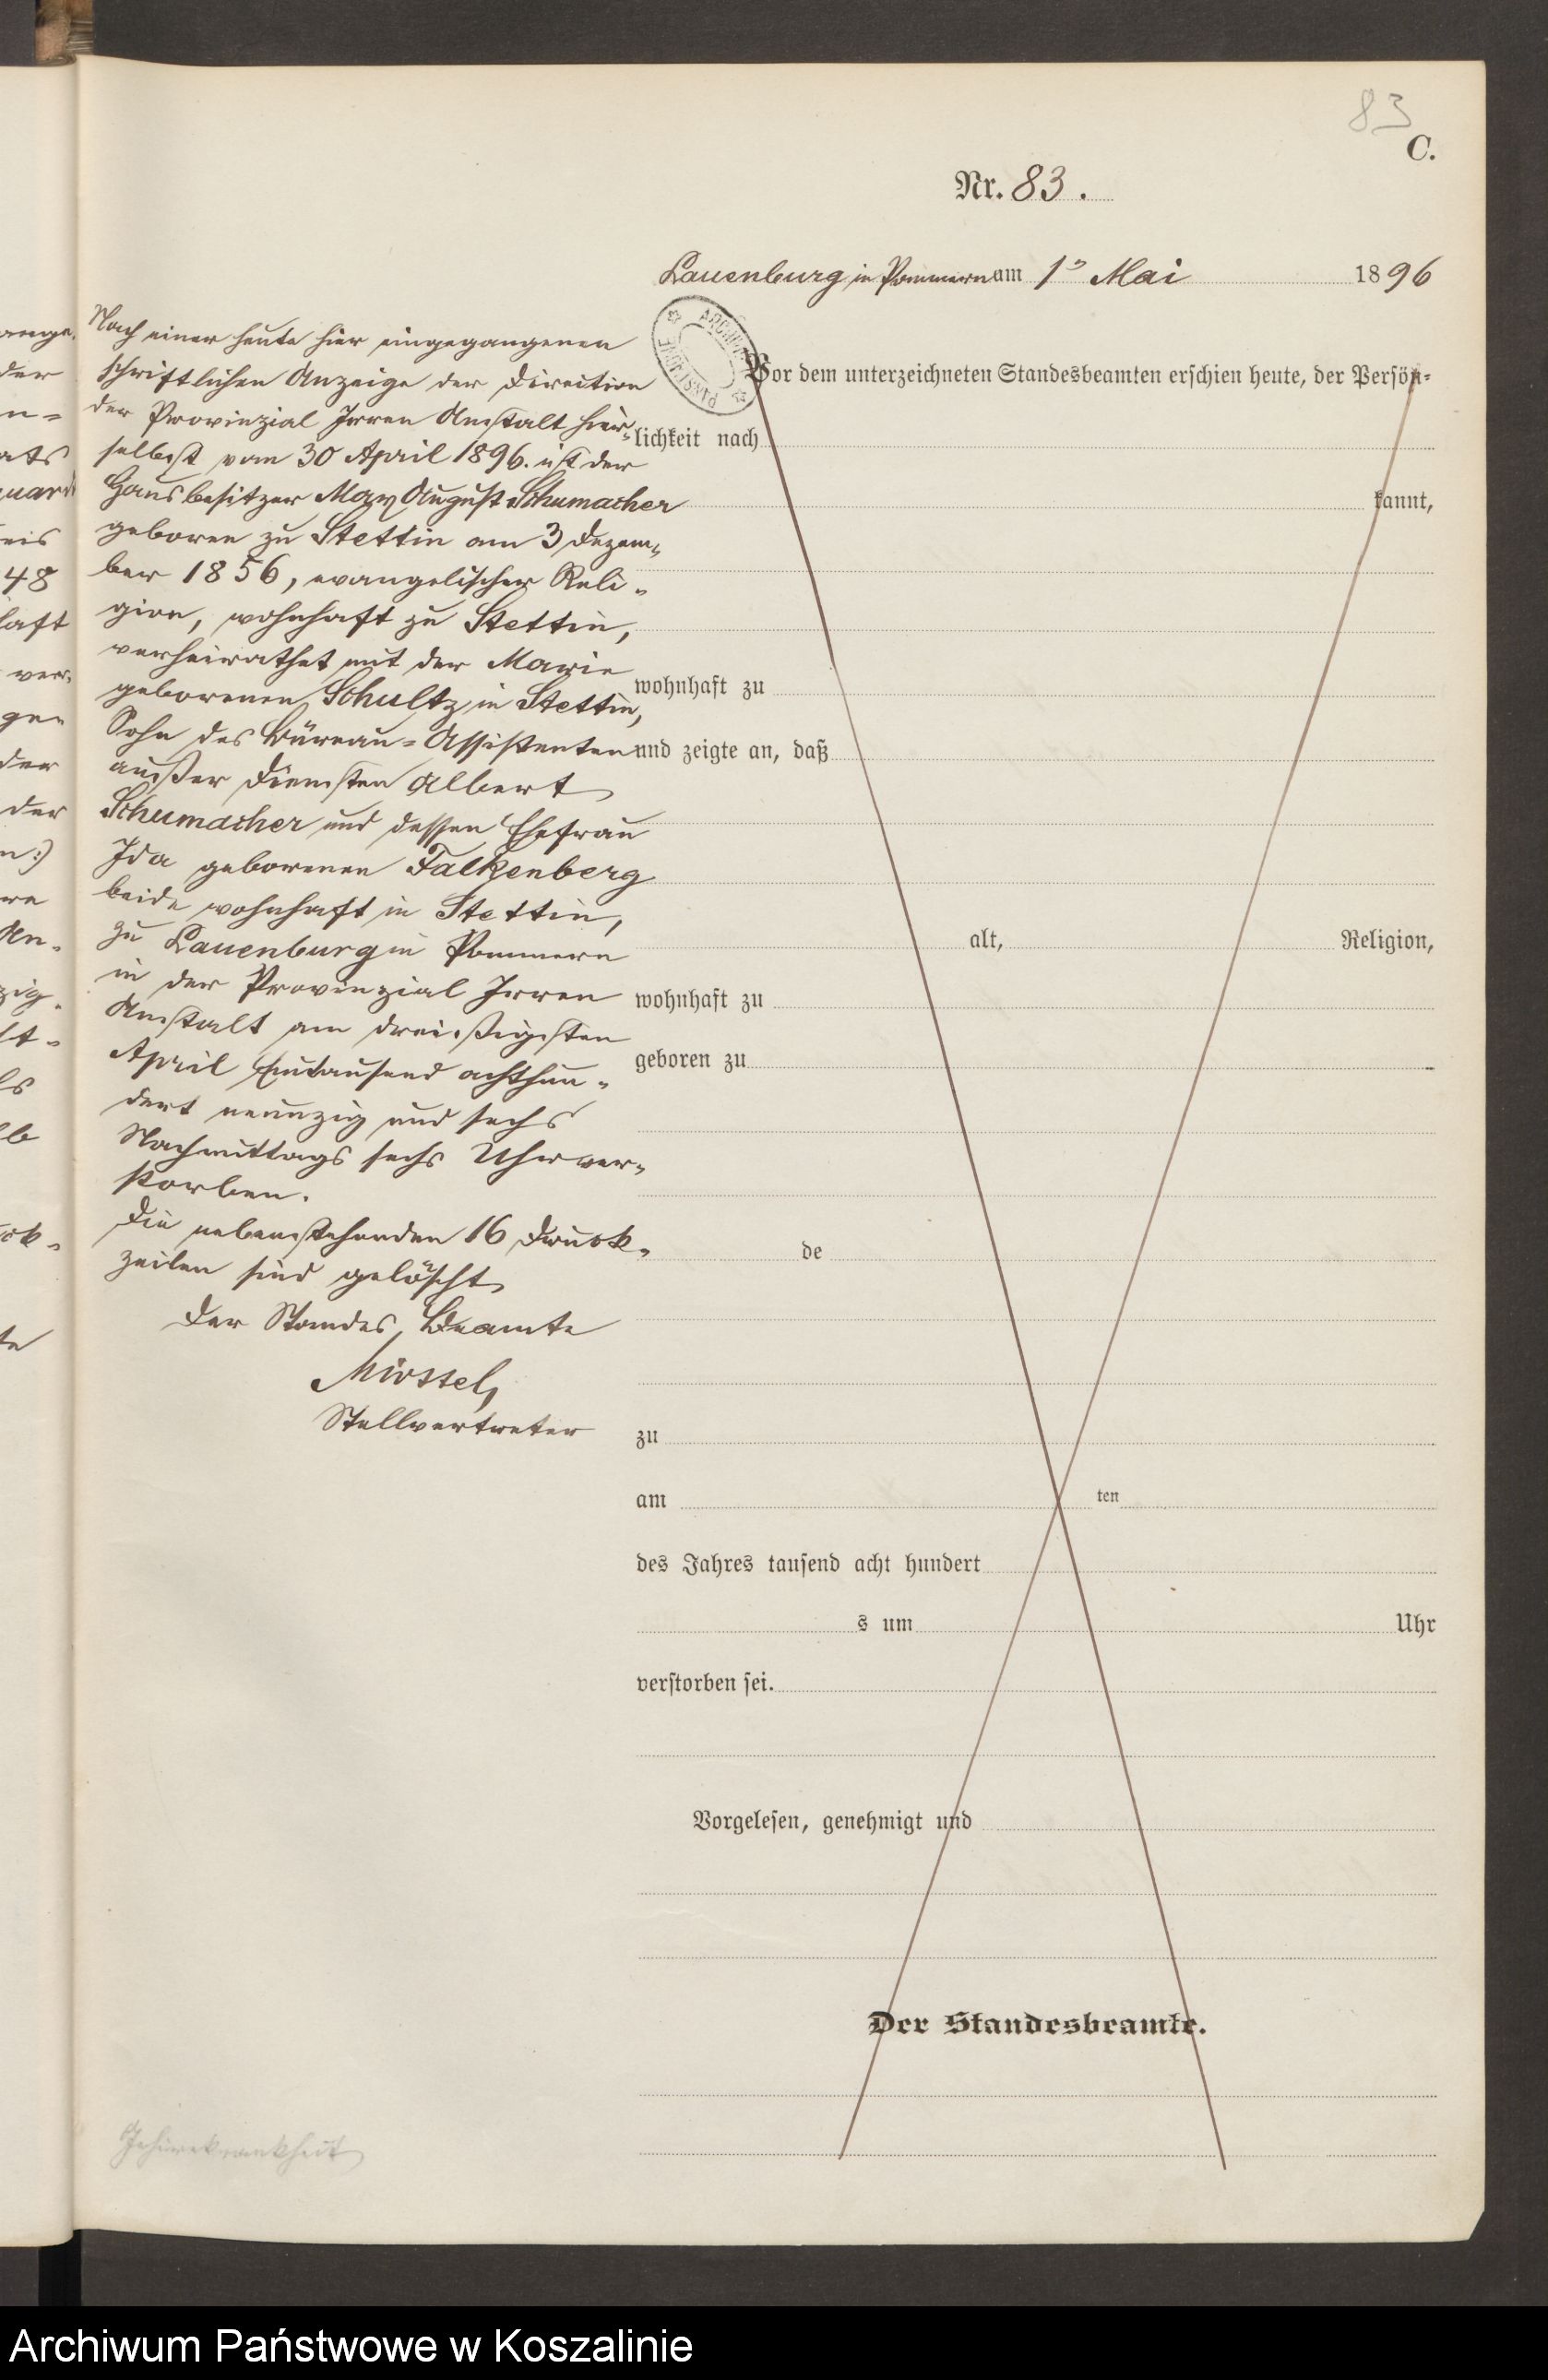 83
C.
Nr. 83.
Lauenburg in Pommern am 1ᵗ Mai 1896
Nach einer heute hier eingegangenen
schriftlichen Anzeige der Direction
der Provinzial Irren Anstalt hier-
selbst vom 30 April 1896. ist der
Hausbesitzer Max August Schumacher
geboren zu Stettin am 3 Dezem-
ber 1856, evangelischer Reli-
gion, wohnhaft zu Stettin,
verheirathet mit der Marie
geborenen Schultz in Stettin,
Sohn des Büreau-Assistenten
außer Diensten Albert
Schumacher und dessen Ehefrau
Ida geborenen Falkenberg
beide wohnhaft in Stettin,
zu Lauenburg in Pommern
in der Provinzial Irren
Anstalt am dreißigsten
April Eintausend achthun-
dert neunzig und sechs
Nachmittags sechs Uhr ver-
storben.
Die nebenstehenden 16 Druck-
zeilen sind gelöscht
Der Standes Beamte
Stellvertreter
Vor dem unterzeichneten Standesbeamten erschien heute, der Persön-
lichkeit nach
kannt,
wohnhaft zu
und zeigte an, daß
alt, Religion,
wohnhaft zu
geboren zu
de
zu
am ten
des Jahres tausend acht hundert
s um Uhr
verstorben sei.
Vorgelesen, genehmigt und
Der Standesbeamte.
Archiwum Państwowe w Koszalinie